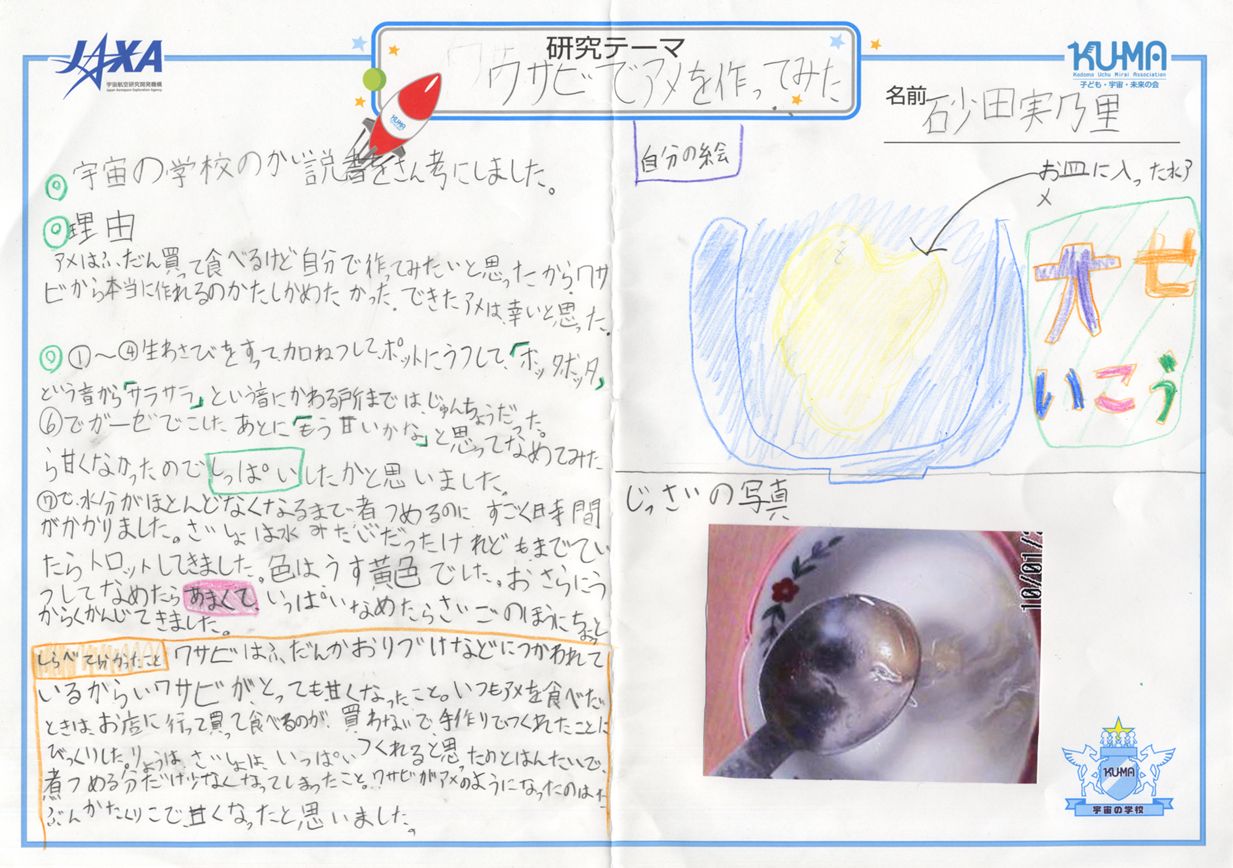 JAXA
宇宙航空研究開発機構
Japan Aerospace Exploration Agency
研究テーマ
ワサビでアメを作ってみた
KUMA
Kodomo Uchu Mirai Association
子ども・宇宙・未来の会
名前 砂田実乃里
KUMA
◎宇宙の学校のかい説書をさん考にしました。
◎理由
アメはふだん買って食べるけど自分で作ってみたいと思ったからワサ
ビから本当に作れるのかたしかめたかった。できたアメは、辛いと思った。
◎①〜④生わさびをすって加ねつして、ポットにうつして、「ボッタボッタ」
という音から「サラサラ」という音にかわる所までは、じゅんちょうだった。
⑥でガーゼでこしたあとに「もう甘いかな」と思ってなめてみた
ら甘くなかったのでしっぱいしたかと思いました。
⑦で、水分がほとんどなくなるまで煮つめるのにすごく時間
がかかりました。さいしょは水みたいだったけれどもまぜてい
たらトロットしてきました。色はうす黄色でした。おさらにう
つしてなめたらあまくて、いっぱいなめたらさいごのほうにちょっと
からくかんじてきました。
しらべて分かったこと ワサビはふだんかおりづけなどにつかわれて
いるからいワサビがとっても甘くなったこと。いつもアメを食べたい
ときは、お店に行って買って食べるのが、買わないで、手作りでつくれたことに
びっくりした。りょうは、さいしょは、いっぱいつくれると思ったのとはんたいで、
煮つめる分だけ少なくなってしまったこと。ワサビがアメのようになったのはた
ぶんかたくりこで甘くなったと思いました。
自分の絵
お皿に入った水ア
メ
大せ
いこう
じっさいの写真
10/01/
KUMA
宇宙の学校